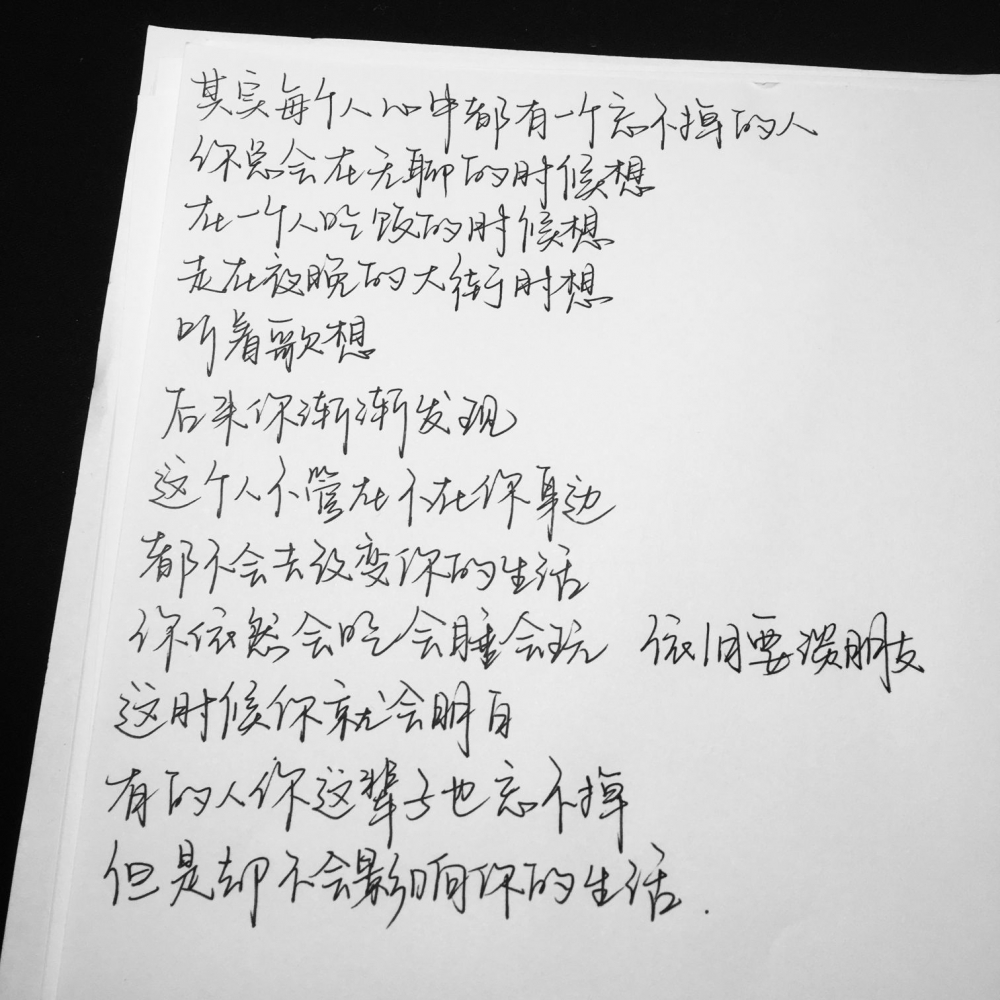 其实每个人心中都有一个忘不掉的人
你总会在无聊的时候想
在一个人吃饭的时候想
走在夜晚的大街时想
听着歌想
后来你渐渐发现
这个人不管在不在你身边
都不会去改变你的生活
你依然会吃会睡会玩 依旧要谈朋友
这时候你就会明白
有的人你这辈子也忘不掉
但是却不会影响你的生活.